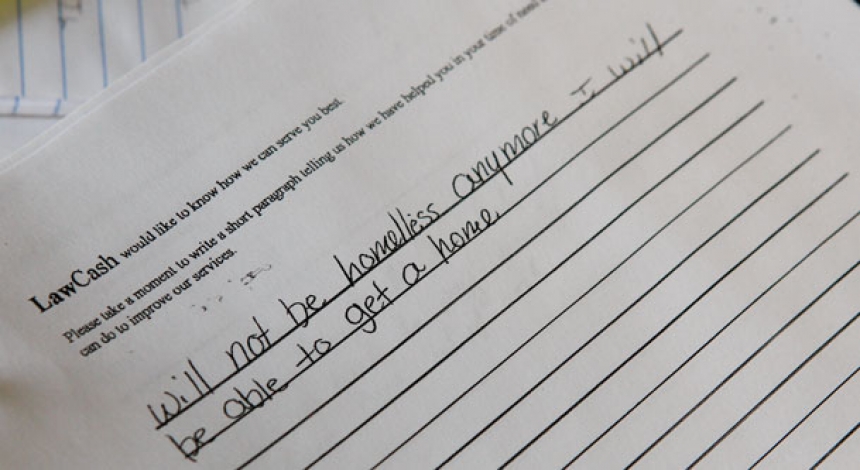 LawCash would like to know how we can serve you best.
Please take a moment to write a short paragraph telling us how we have helped you in your time of need
can do to improve our services.
will not be homeless anymore I will
be able to get a home.